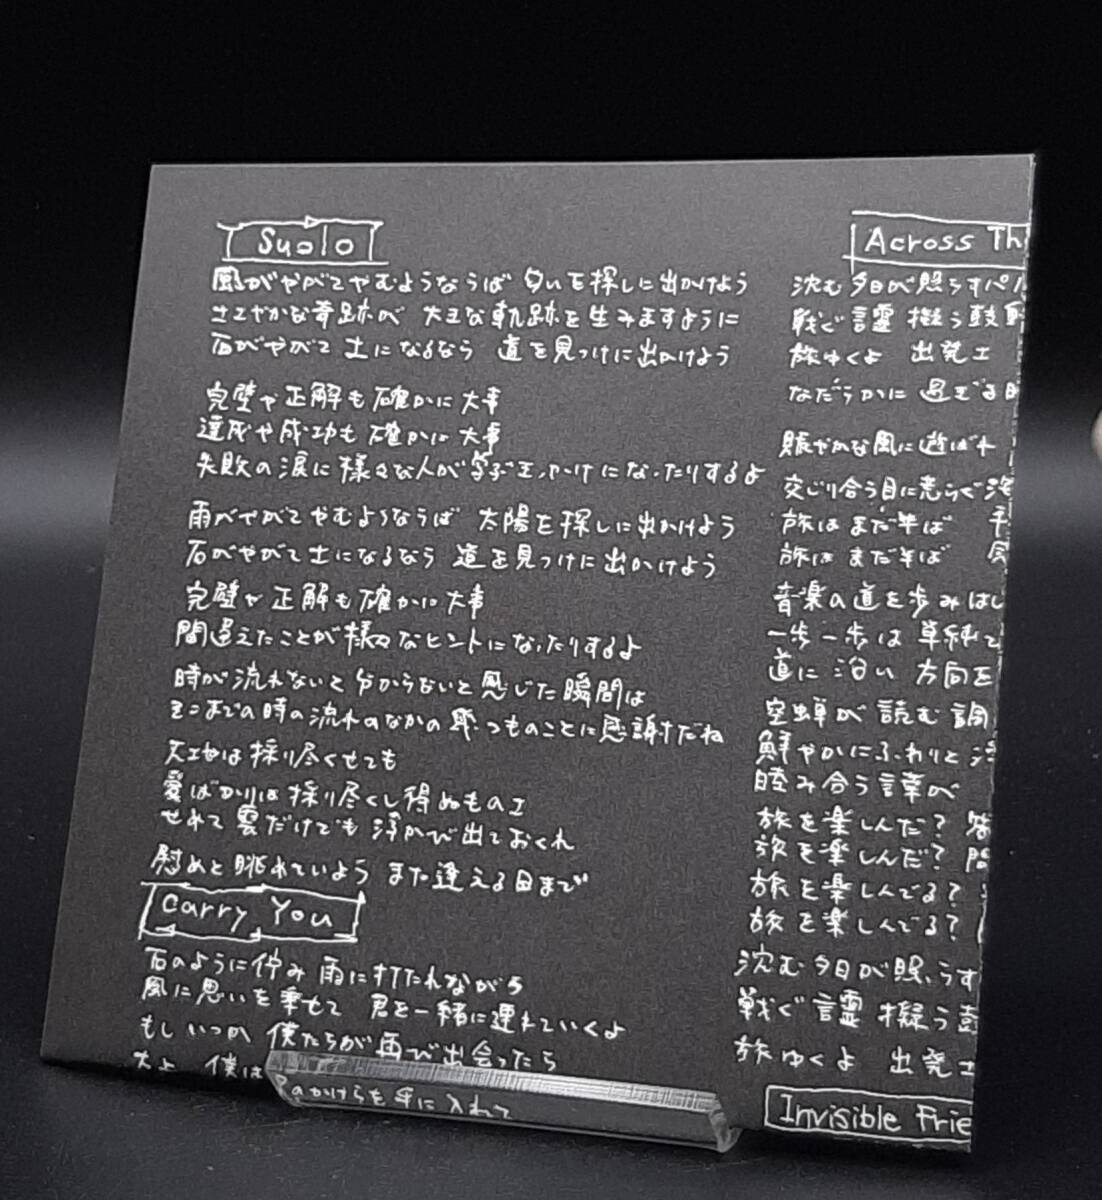 Suolo
風がやがてやむようならば 匂いを探しに出かけよう
ささやかな奇跡が 大きな軌跡を生みますように
石がやがて土になるなら 道を見つけに出かけよう
完璧や正解も確かに大事
達成や成功も確かに大事
失敗の涙に様々な人が学ぶきっかけになったりするよ
雨がやがてやむようならば 太陽を探しに出かけよう
石がやがて土になるなら 道を見つけに出かけよう
完璧や正解も確かに大事
間違えたことが様々なヒントになったりするよ
時が流れないと分からないと感じた瞬間は
そこまでの時の流れのなかの
ことに感謝だね
は採り尽くせても
愛ばかりは採り尽くし得ぬもの
せめて雲だけでも浮かび出ておくれ
慰めと眺めていよう また逢える日まで
Carry You
石のように佇み 雨に打たれながら
風に思いを乗せて 君を一緒に連れていくよ
もしいつか 僕たちが再び出会ったら
僕は
のかけらを手に入れて
Across Th
沈む夕日が照らす
戦ぐ言霊 擬う鼓
旅ゆくよ 出発
なだらかに 過ぎる時
賑やかな風に遊ば
交じり合う目に
旅はまだ半ば
旅はまだ半ば
音楽の道を歩みはじ
一歩一歩は 単純で
道に沿い 方向を
空蝉が 読む 調
鮮やかにふわりと
睦み合う言葉が
旅を楽しんだ?
旅を楽しんだ?
旅を楽しんでる?
旅を楽しんでる?
沈む夕日が照らす
戦ぐ言霊 擬う鼓
旅ゆくよ 出発
Invisible Frie